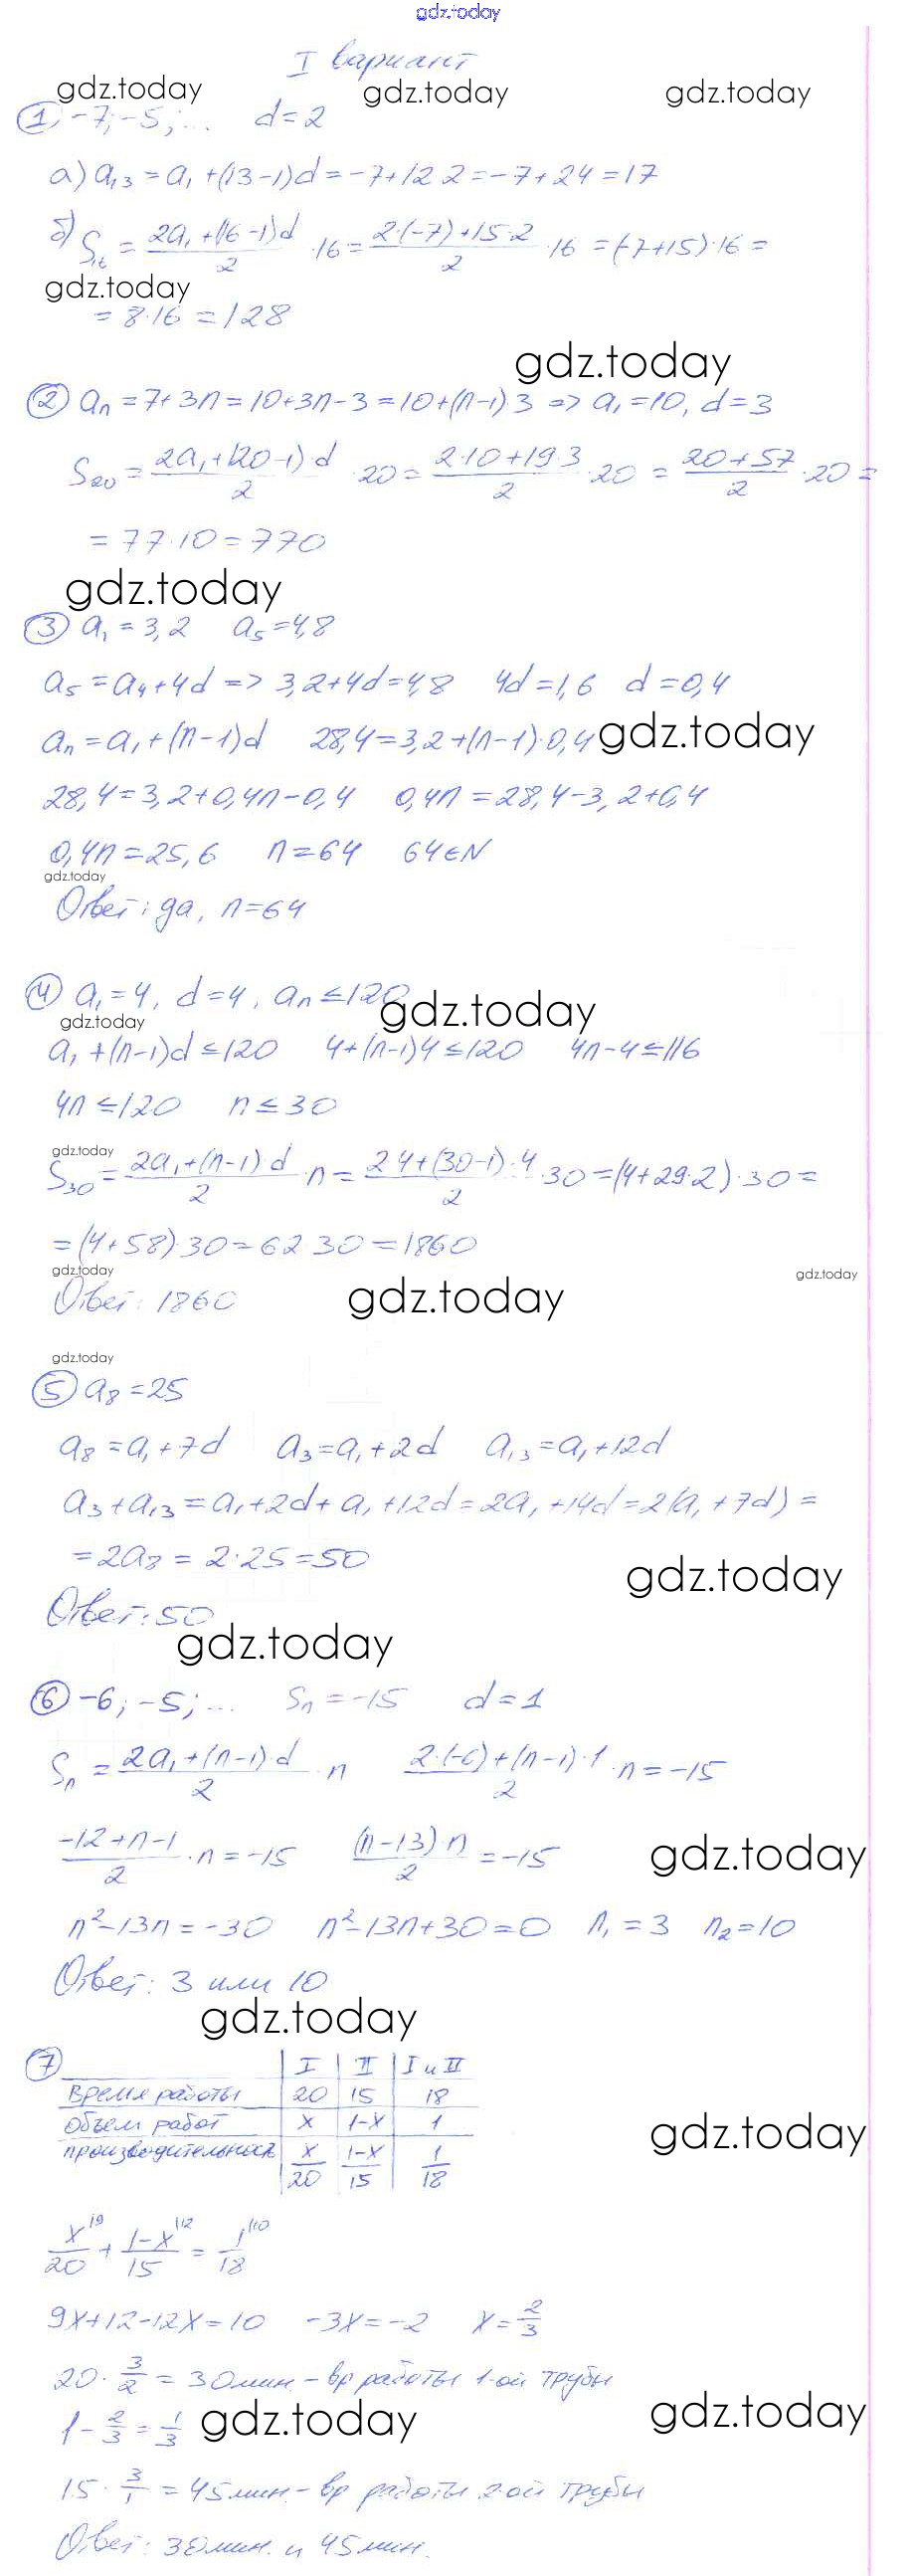 gdz.today
I вариант
gdz.today gdz.today gdz.today
① -7; -5; ... d=2
а) a₁₃ = a₁ + (13-1)d = -7+12·2 = -7+24 = 17
б) S₁₆ = (2a₁+(16-1)d)/2 · 16 = (2·(-7)+15·2)/2 · 16 = (-7+15)·16 =
gdz.today
= 8·16 = 128
gdz.today
② aₙ = 7+3n = 10+3n-3 = 10+(n-1)3 => a₁=10, d=3
S₂₀ = (2a₁+(20-1)·d)/2 · 20 = (2·10+19·3)/2 · 20 = (20+57)/2 · 20 =
= 77·10 = 770
gdz.today
③ a₁ = 3,2 a₅ = 4,8
a₅ = a₄+4d => 3,2+4d=4,8 4d=1,6 d=0,4
aₙ = a₁+(n-1)d 28,4=3,2+(n-1)·0,4 gdz.today
28,4=3,2+0,4n-0,4 0,4n=28,4-3,2+0,4
0,4n=25,6 n=64 64∈N
gdz.today
Ответ: да, n=64
④ a₁=4, d=4, aₙ≤120 gdz.today
gdz.today
a₁+(n-1)d≤120 4+(n-1)4≤120 4n-4≤116
4n≤120 n≤30
gdz.today
S₃₀ = (2a₁+(n-1)d)/2 · n = (2·4+(30-1)·4)/2 · 30 = (4+29·2)·30 =
= (4+58)·30 = 62·30 = 1860
gdz.today gdz.today
Ответ: 1860 gdz.today
gdz.today
⑤ a₈ = 25
a₈ = a₁+7d a₃ = a₁+2d a₁₃ = a₁+12d
a₃+a₁₃ = a₁+2d+a₁+12d = 2a₁+14d = 2(a₁+7d) =
= 2a₈ = 2·25 = 50 gdz.today
Ответ: 50
gdz.today
⑥ -6; -5; ... Sₙ = -15 d=1
Sₙ = (2a₁+(n-1)·d)/2 · n (2·(-6)+(n-1)·1)/2 · n = -15
(-12+n-1)/2 · n = -15 ((n-13)·n)/2 = -15 gdz.today
n²-13n = -30 n²-13n+30=0 n₁=3 n₂=10
Ответ: 3 или 10
gdz.today
⑦ I II I и II
время работы 20 15 18
объем работ x 1-x 1
gdz.today
производительность x/20 (1-x)/15 1/18
x^|9/20 + (1-x)^|12/15 = 1^|10/18
9x+12-12x=10 -3x=-2 x=2/3
20·3/2 = 30 мин. - вр работы 1-ой трубы
1-2/3 = 1/3 gdz.today gdz.today
15·3/1 = 45 мин. - вр работы 2-ой трубы
Ответ: 30 мин. и 45 мин.